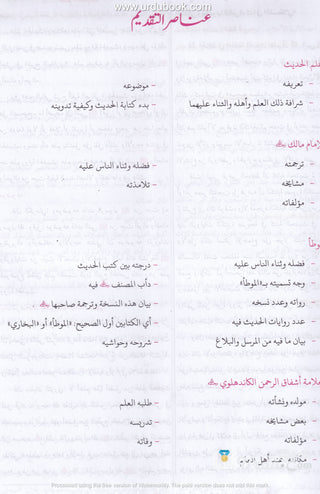 www.urdubook.com
عناصر التقديم
علم الحديث
– تعريفه
– موضوعه
– شرافة ذلك العلم وأهله والثناء عليهما
– بدء كتابة الحديث وكيفية تدوينه
لامام مالك
– ترجمته
– فضله وثناء الناس عليه
– مشايخه
– تلامذته
– مؤلفاته
وطأ
– فضله وثناء الناس عليه
– درجته بين كتب الحديث
– وجه تسميته بـ«الموطأ»
– دأب المصنف فيه
– رواته وعدد نسخه
– بيان هذه النسخة وترجمة صاحبها
– عدد روايات الحديث فيه
– أي الكتابين أول الصحيح: «الموطأ» أو «البخاري»
– بيان ما فيه من المرسل والبلاغ
– شروحه وحواشيه
علامة أشفاق الرحمن الكاندهلوي
– مولده ونشأته
– طلبه العلم
– بعض مشايخه
– تدريسه
– مؤلفاته
– وفاته
– مكانته عند أهل
Protected using the free version of Watermarkly. The paid version does not add this mark.